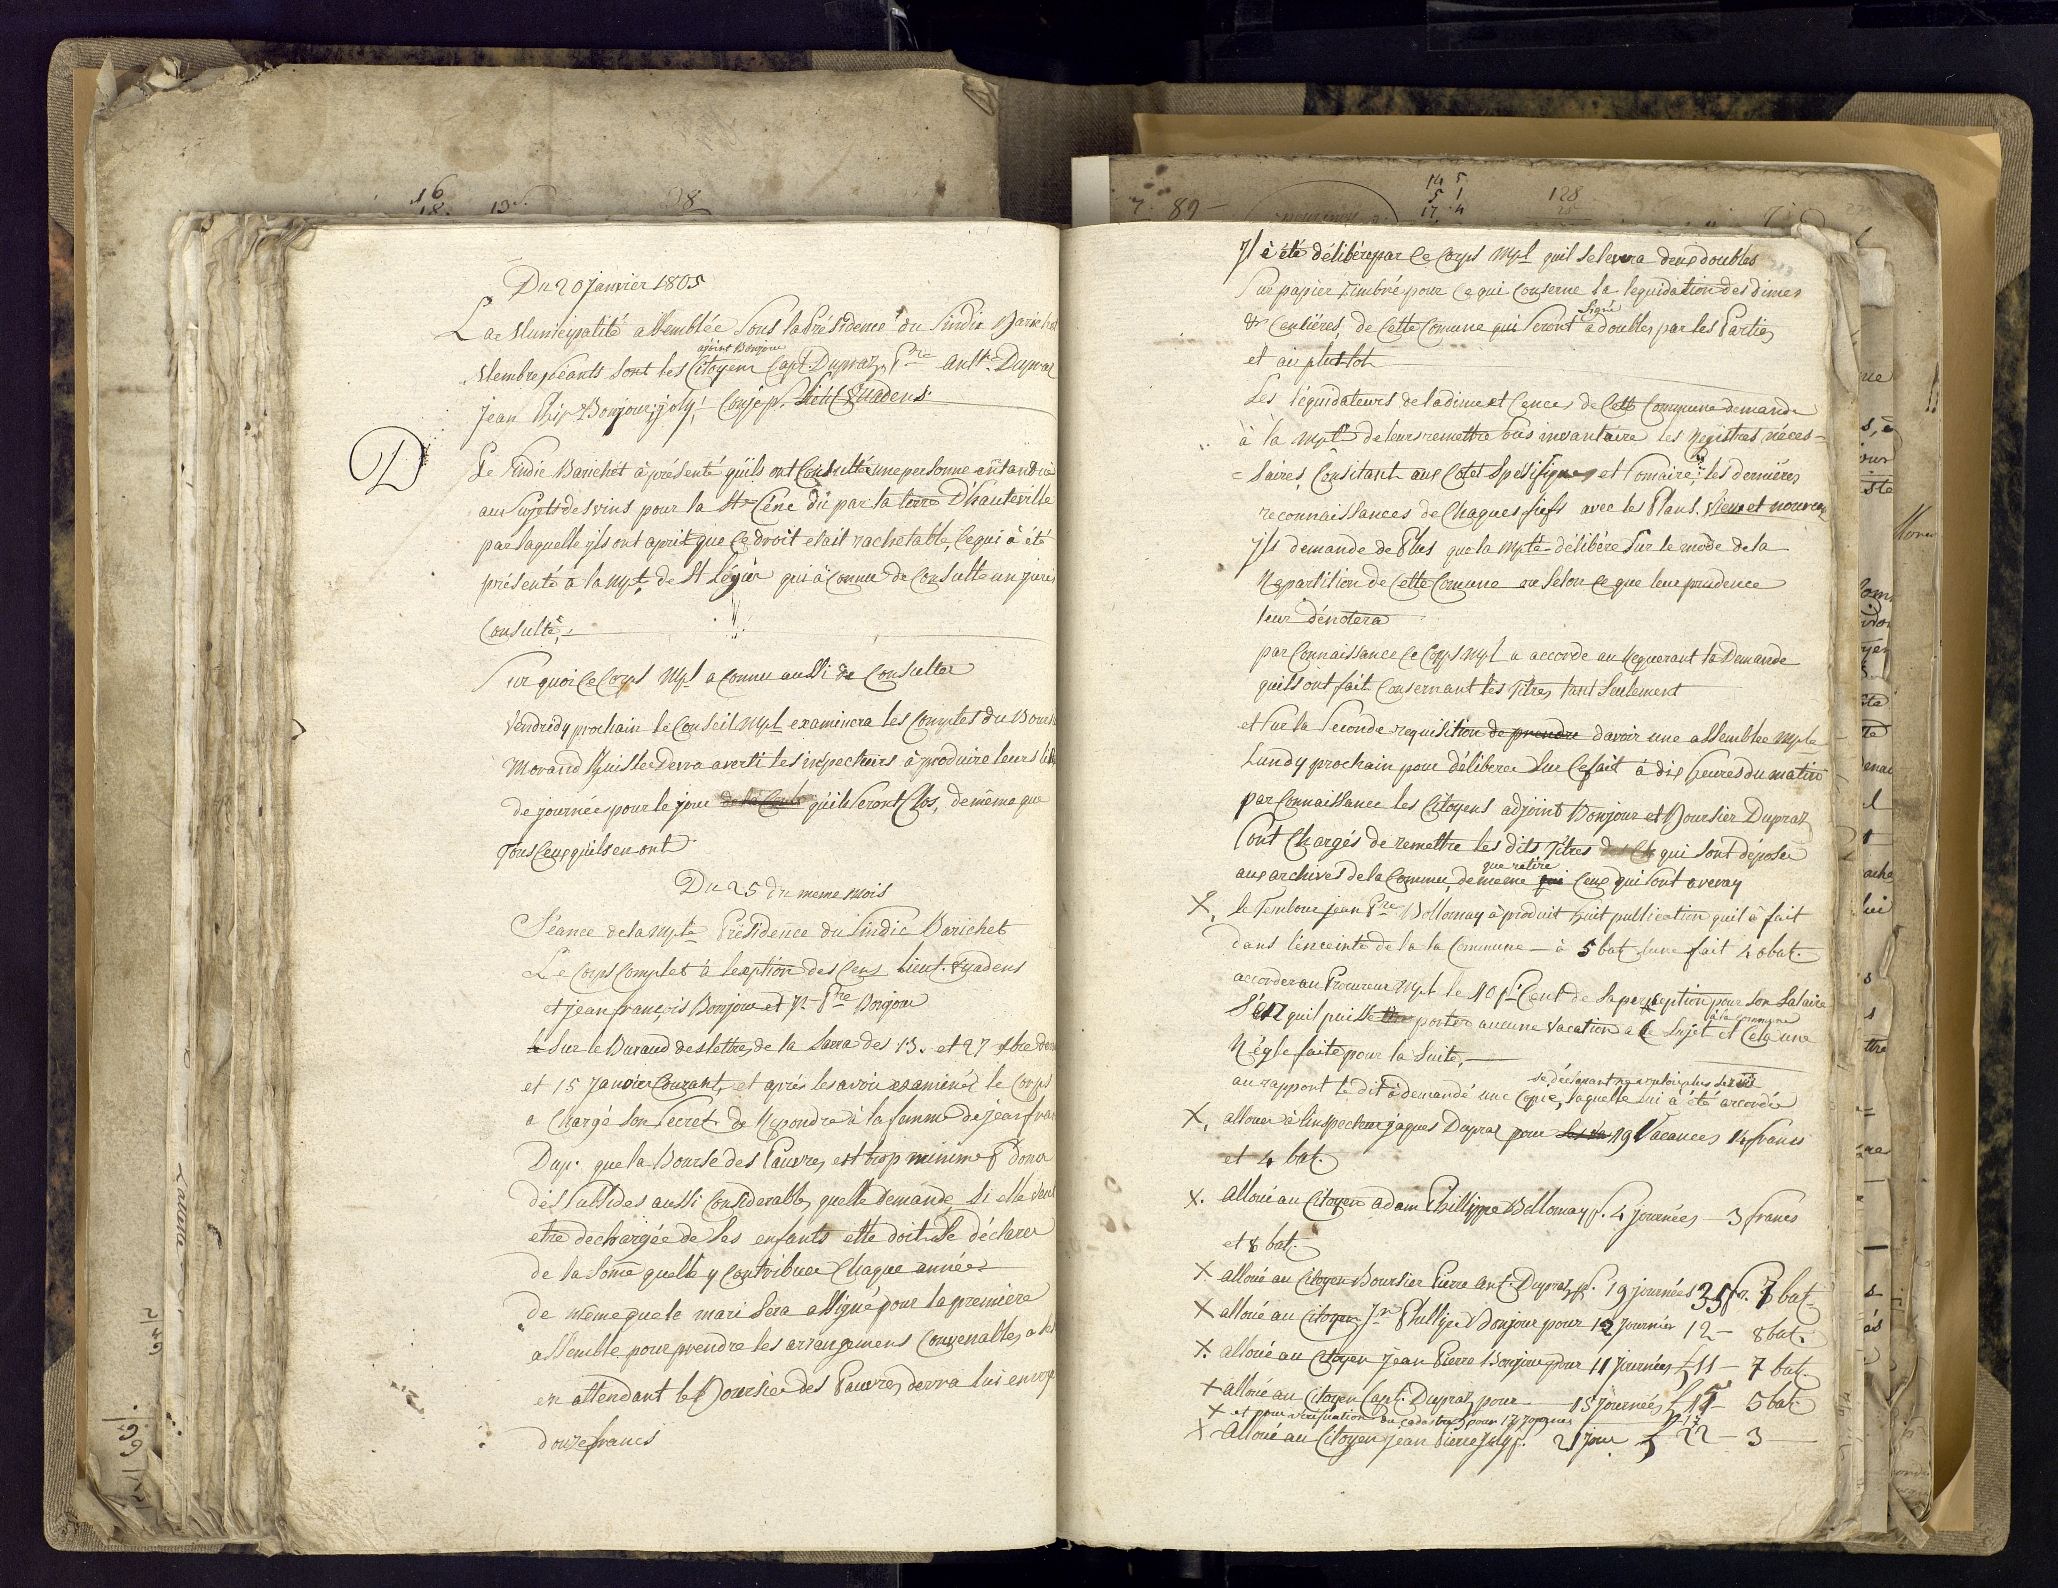 Du 20 Janvier 1805
La Municipalité assemblée sous la Présidence du Sindic Barichet
adjoint Bonjour
Membres séants sont les Citoyens Capt. Dupraz, Pre Ant. Dupraz
Jean Phip Bonjour, joly,
D
Le Sindic Barichet à présenté quils ont Consulté une personne
au Sujet des vins pour la Ste Cène dû par la terre D'hauteville
par laquelle ils ont aprit que Ce droit etait rachetable, Ce qui à été
présenté à la Mpté de St Légier qui à Connu de Consulter un juris
Consulte,
Sur quoi Ce Corps Mpl a Connu aussi de Consulter
Vendredy prochain le Conseil Mpl examinera les Comptes du Bours
Morand huissier devra averti les inspecteurs à produire leurs
de journées pour le jour quils seront Clos, de même que
Tous Ceux quils en ont
Du 25 du meme mois
Séance de la Mpté Présidence du Sindic Barichet
Le Corps Complet à lexeption des Cens Lieut.
et jean françois Bonjour et Jn Pre Bonjour
Sur le Bureau des lettres de la Sarra des 13. et 27 Xbre
et 15 Janvier Courant, et après les avoir examinés le Corps
a Chargé Son Secret. de Repondre à la femme de jean fran
Dup. que la Bourse des Pauvres est trop minime p donner
des Subsides aussi Considerables quelle demande, Si elle veut
etre dechargée de Ses enfants elle doit Se déclarer
de la Somme quelle y Contribuer Chaque année
de même que le mari Sera assigné pour la première
assemblé pour prendre les arrangemens Convenables
en attendant le Boursier des Pauvres devra lui
douze francs
Il à été délibéré par le Corps Mpl quil se levera deux doubles
Sur papier Timbré pour Ce qui Conserne la lequidation des dimes
Signé
& Censières, de Cette Comune qui Seront à doubles par les Parties
et au plutot
Les léquidateurs de la dime et Cences de Cette Commune demande
à la Mpté de leurs remettre Sous inventaire les Régistres néces=
=saires, Consitant aux Cotes Spesifiques et Somaire les dernières
reconnaissances de Chaques fiefs avec les Plans. Vieux et nouveau
Ils demande de Plus que la Mpté délibére Sur le mode de la
Répartition de Cette Comune ou Selon Ce que leur prudence
leur dénotera
par Connaissance le Corps Mpl a accorde au Requerant la Demande
quils ont fait Consernant les Titres tant Seulement
et Sur la Seconde requisition de prendre davoir une assemblée Mple
Lundy prochain pour déliberer Sur Ce fait à dix heures du matin
par Connaissance les Citoyens adjoint Bonjour et Boursier Dupraz
Sont Chargés de remettre les dits Titres qui Sont déposés
que retire
aux archives de la Commune, de meme Ceux qui Sont a vevay
X, le Tembour jean Pre Bollomay à produit huit publication quil à fait
dans lenceinte de la la Commune — à 5 bat. lune fait 40 bat.
accorder au Procureur Mpl le 10 p Cent de Sa perception pour Son Salaire
à la Commune
S'en quil puisse porter aucune Vacation a Ce Sujet et Cela une
Régle faite pour la Suite,
au rapport le dit à demandé une Copie, laquelle lui à été accordée
X, allouer à linspecteur jaques Dupraz pour 19 Vacances 14 francs
et 4 bat.
X. alloué au Citoyen adam Phillippe Bollomay p. 4 journées — 3 francs
et 8 bat.
X. alloué au Citoyen Boursier Pierre Ant. Dupraz p. 19 journées 35 fr. 7 bat.
X alloué au Citoyen Jn Phillipe Bonjour pour 12 journées 12 — 8 bat.
X. alloué au Citoyen Jean Pierre Bonjour pour 11 journées £ 11 — 7 bat.
X alloué au Citoyen Capt. Dupraz pour — 15 journées £ 15 — 5 bat.
X et pour du Cadastre, pour 17
X Alloué au Citoyen Jean Pierre Joly p. 21 jour £ 22 — 3